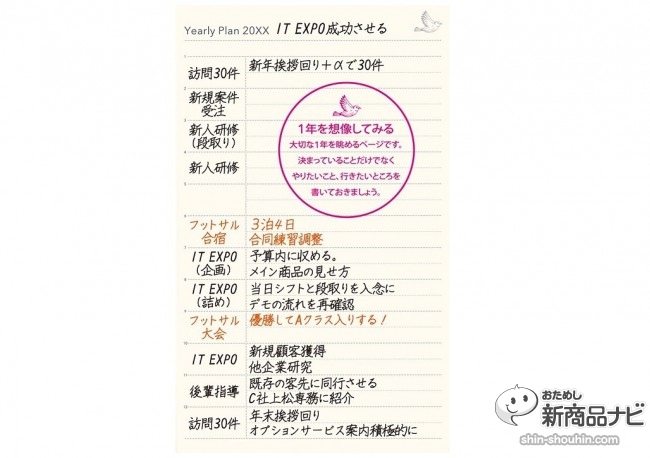 Yearly Plan 20XX IT EXPO成功させる
1
訪問30件
新年挨拶回り+αで30件
2
新規案件
受注
3
新人研修
(段取り)
4
新人研修
5
1年を想像してみる
大切な1年を眺めるページです。
決まっていることだけでなく
やりたいこと、行きたいところを
書いておきましょう。
6
フットサル
合宿
3泊4日
合同練習調整
7
IT EXPO
(企画)
予算内に収める。
メイン商品の見せ方
8
IT EXPO
(詰め)
当日シフトと段取りを入念に
デモの流れを再確認
9
フットサル
大会
優勝してAクラス入りする!
10
IT EXPO
新規顧客獲得
他企業研究
11
後輩指導
既存の客先に同行させる
C社上松専務に紹介
12
訪問30件
年末挨拶回り
オプションサービス案内積極的に
おためし
新商品ナビ
shin-shouhin.com